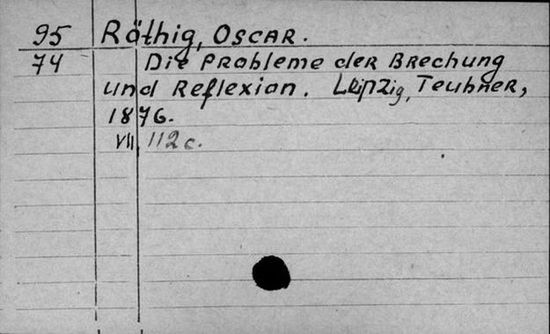 95 Räthig, Oscar.
74 Die Probleme der Brechung
und Reflexion. Leipzig, Teubner,
1876.
VII, 112 c.